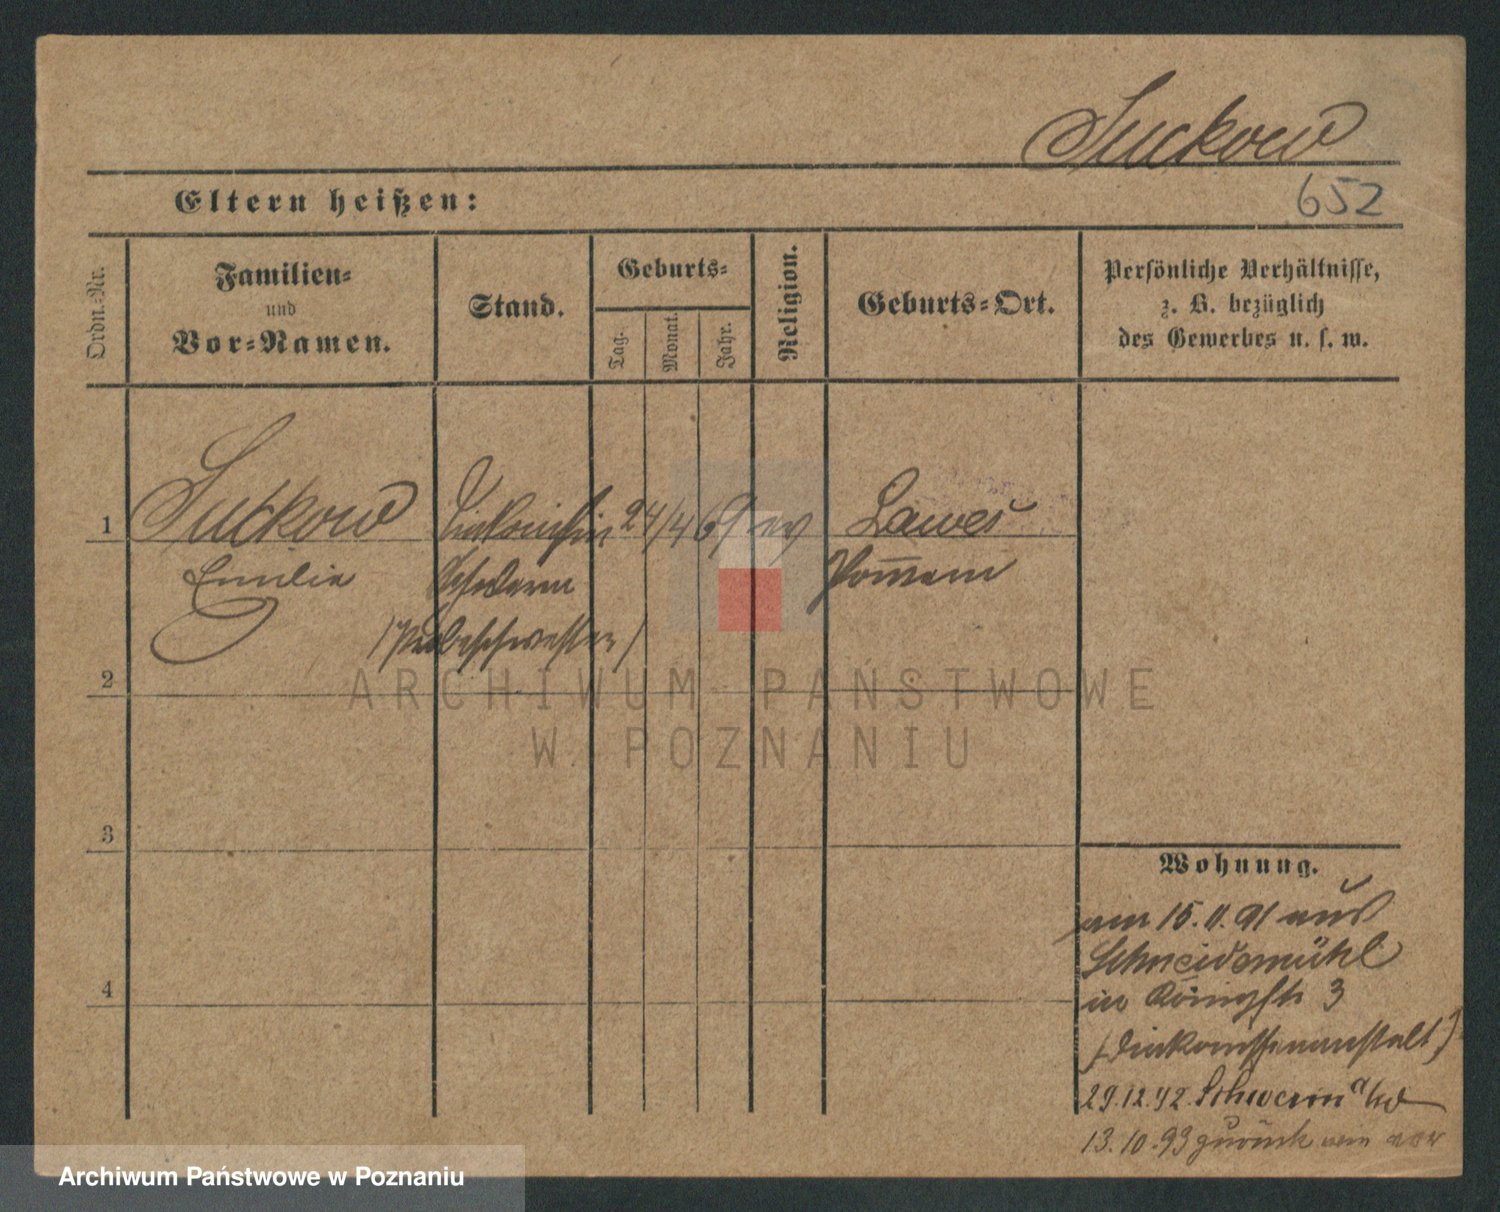 Suckow
652
Eltern heißen:
Ordn.-Nr.
Familien-
und
Vor-Namen.
Stand.
Geburts-
Tag.
Monat.
Jahr.
Religion.
Geburts-Ort.
Persönliche Verhältnisse,
z. B. bezüglich
des Gewerbes u. s. w.
1
Suckow
Diakonissin
24/4 69
ev
Emilie
Pommern
/Probeschwester/
2
3
4
Wohnung.
am 15.11.91 aus
Schneidemühl
in Königstr 3
(Diakonissenanstalt)
29.12.92 Schwerin a/W
13.10.93 zurück wie vor
ARCHIWUM PAŃSTWOWE
W POZNANIU
Archiwum Państwowe w Poznaniu